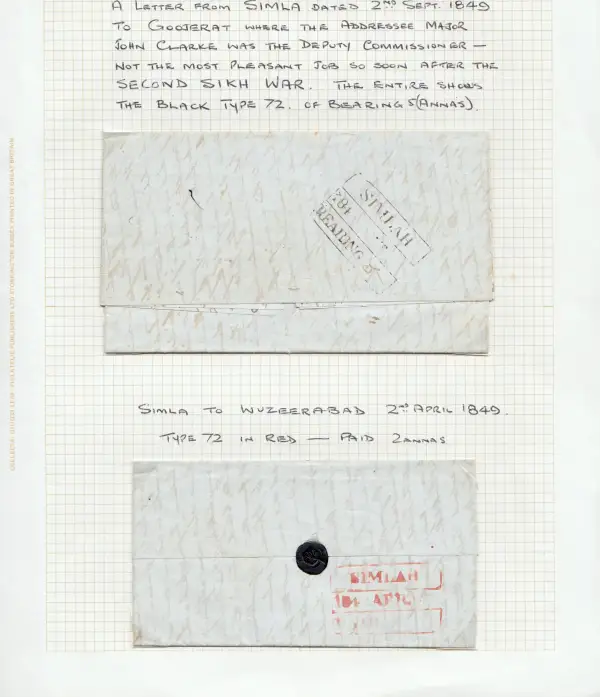 A LETTER FROM SIMLA DATED 2ND SEPT. 1849
TO GOOJERAT WHERE THE ADDRESSEE MAJOR
JOHN CLARKE WAS THE DEPUTY COMMISSIONER —
NOT THE MOST PLEASANT JOB SO SOON AFTER THE
SECOND SIKH WAR. THE ENTIRE SHOWS
THE BLACK TYPE 72. OF BEARING 5(ANNAS).
SIMLAH
184
BEARING 5
SIMLA TO WUZEERABAD 2ND APRIL 1849.
TYPE 72 IN RED — PAID 2 ANNAS
SIMLAH
APR